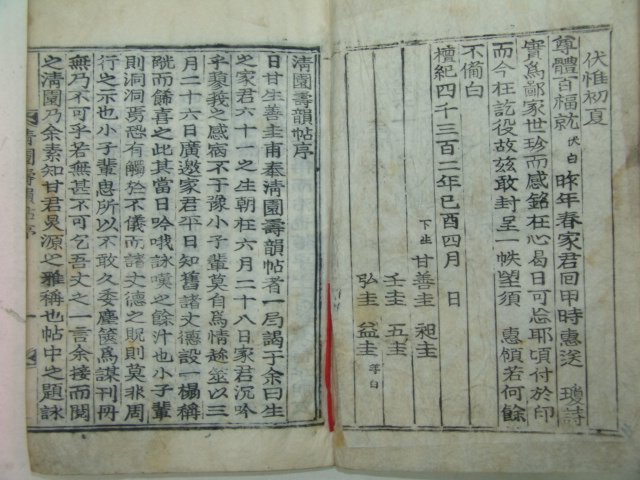 伏惟初夏
尊體百福就伏白昨年春家君回甲時惠送瓊詩
實爲鄙家世珍而感銘在心曷日可忘耶頃付於印
而今在訖役故玆敢封呈一帙望須惠領若何餘
不備白
檀紀四千三百二年己酉四月日
下生甘善圭昶圭
壬圭五圭
弘圭益圭等白
淸園壽韻帖序
日甘生善圭甫奉淸園壽韻帖者一局謁于余曰生
之家君六十一之生朝在六月二十八日家君沉吟
乎蓼莪之感宿不于豫小子輩莫自爲情趁筮以三
月二十六日廣邀家君平日知舊諸丈德設一榻稱
觥而餙喜之此其當日吟哦詠嘆之餘汁也小子輩
則洞洞焉恐有觸於不儀而諸丈德之貺則莫非周
行之示也小子輩息所以不敢久委塵篋爲謀刊冊
無乃不可乎若無甚不可乞吾丈之一言余接而閱
之淸園乃余素知甘君炅源之雅稱也帖中之題詠
淸園壽韻帖序 一